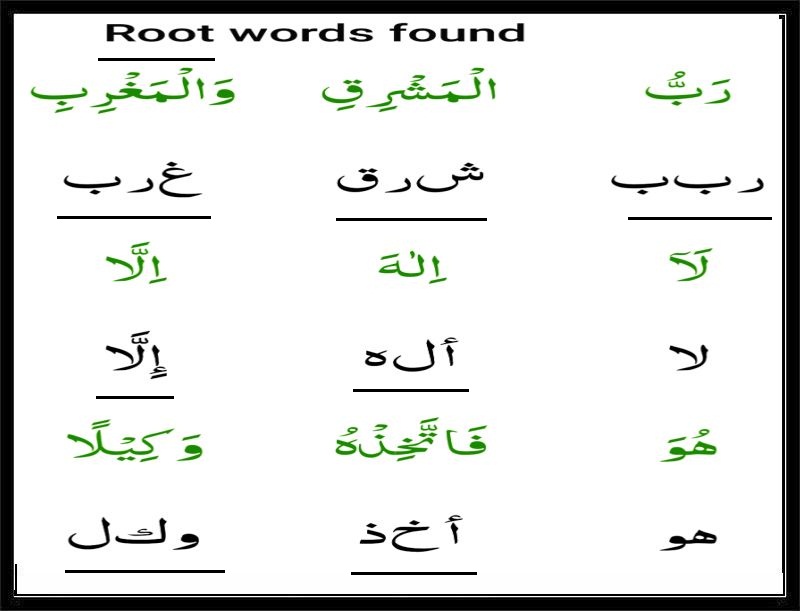 Root words found
رَبُّ الْمَشْرِقِ وَالْمَغْرِبِ
ر ب ب ش ر ق غ ر ب
لَآ اِلٰهَ اِلَّا
لا أ ل ه إِلَّا
هُوَ فَاتَّخِذْهُ وَكِيْلًا
هو أ خ ذ و ك ل